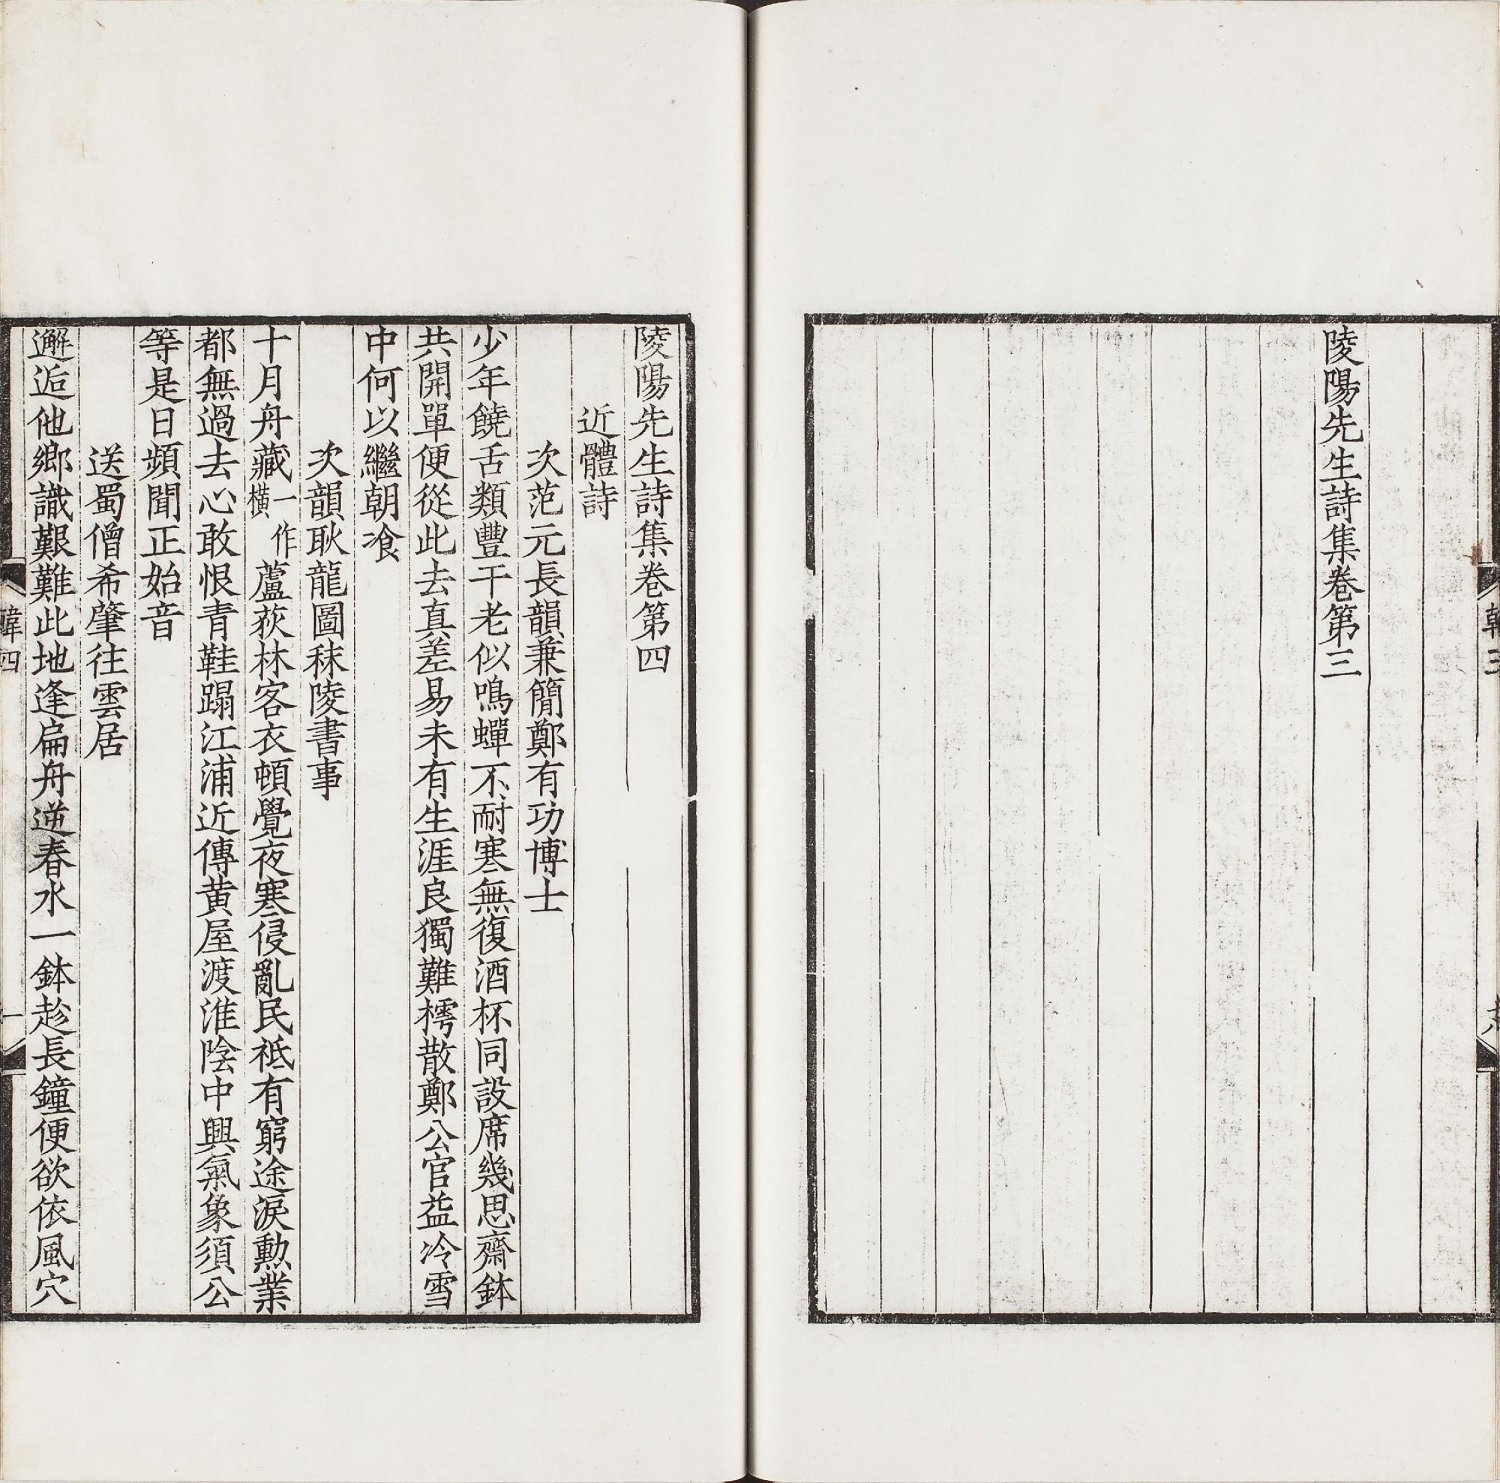 陵陽先生詩集卷第三
陵陽先生詩集卷第四
近體詩
次范元長韻兼簡鄭有功博士
少年饒舌類豐干老似鳴蟬不耐寒無復酒杯同設席幾思齋鉢
共開單便從此去真差易未有生涯良獨難樗散鄭公官益冷雪
中何以繼朝飡
次韻耿龍圖秣陵書事
十月舟藏一作橫蘆荻林客衣頓覺夜寒侵亂民祗有窮途淚勳業
都無過去心敢恨青鞋蹋江浦近傳黃屋渡淮陰中興氣象須公
等是日頻聞正始音
送蜀僧希肇往雲居
邂逅他鄉識艱難此地逢扁舟逆春水一鉢趁長鐘便欲依風穴
韓四
一